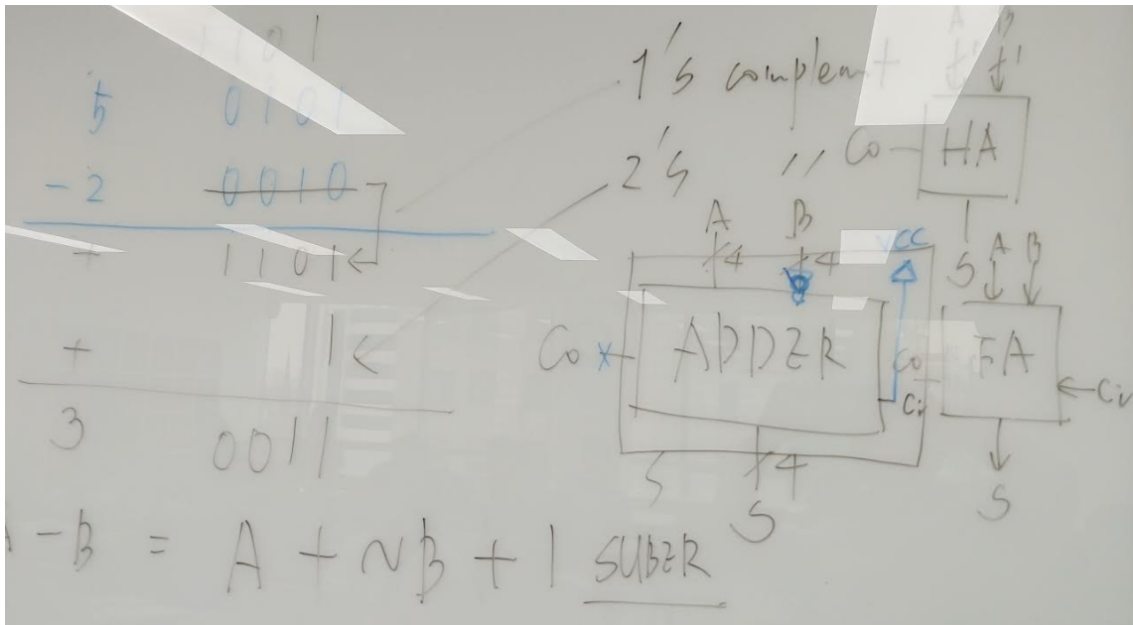 1101
5 0101
- 2 0010
+ 1101
+ 1
3 0011
A - B = A + ~B + 1 SUBER
1's complemt
2's "
A B
4 4
VCC
Co x ADDER Ci
4
S
S
A B
1 1
Co HA
S
A B
Co FA Ci
S